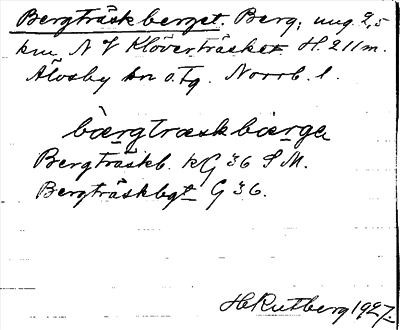 Bergträskberget. Berg, ung. 2,5
km N V Klöverträsket H. 211 m.
Älvsby sn o. tg. Norrb. l.
bæ̀rgtræskbærga
Bergträskb. kG 36 S M.
Bergträskbgt G 36.
H Rutberg 1927.